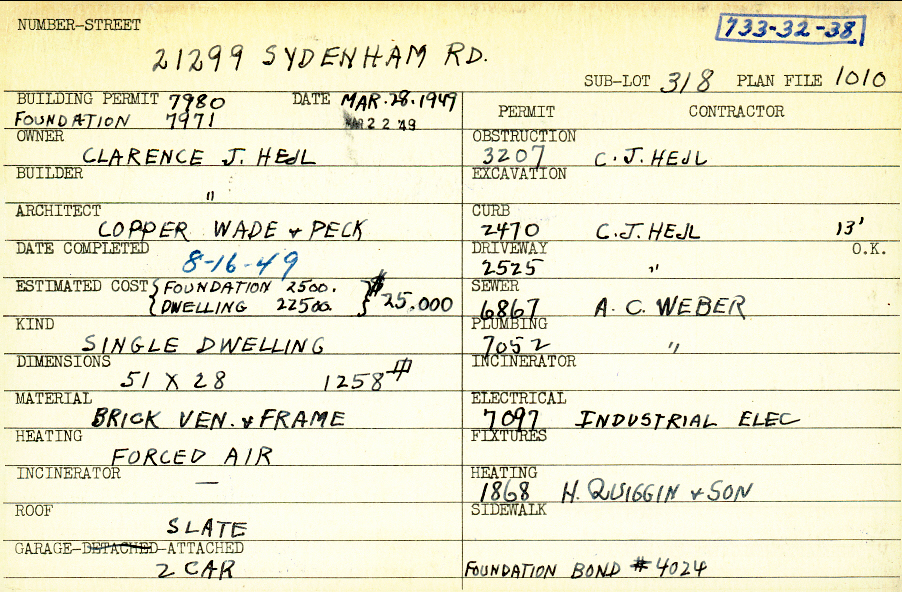 NUMBER-STREET
733-32-38
21299 SYDENHAM RD.
SUB-LOT 318 PLAN FILE 1010
BUILDING PERMIT 7980 DATE MAR.28.1949
FOUNDATION 7971 MAR 22 '49
OWNER
CLARENCE J. HEJL
BUILDER
"
ARCHITECT
COPPER WADE & PECK
DATE COMPLETED
8-16-49
ESTIMATED COST { FOUNDATION 2500.
{ DWELLING 22500. } $25.000
KIND
SINGLE DWELLING
DIMENSIONS
51 X 28 1258 #
MATERIAL
BRICK VEN. & FRAME
HEATING
FORCED AIR
INCINERATOR
—
ROOF
SLATE
GARAGE-DETACHED-ATTACHED
2 CAR
PERMIT CONTRACTOR
OBSTRUCTION
3207 C.J. HEJL
EXCAVATION
CURB
2470 C.J. HEJL 13'
DRIVEWAY O.K.
2525 "
SEWER
6867 A.C. WEBER
PLUMBING
7052 "
INCINERATOR
ELECTRICAL
7097 INDUSTRIAL ELEC
FIXTURES
HEATING
1868 H. QUIGGIN & SON
SIDEWALK
FOUNDATION BOND #4024